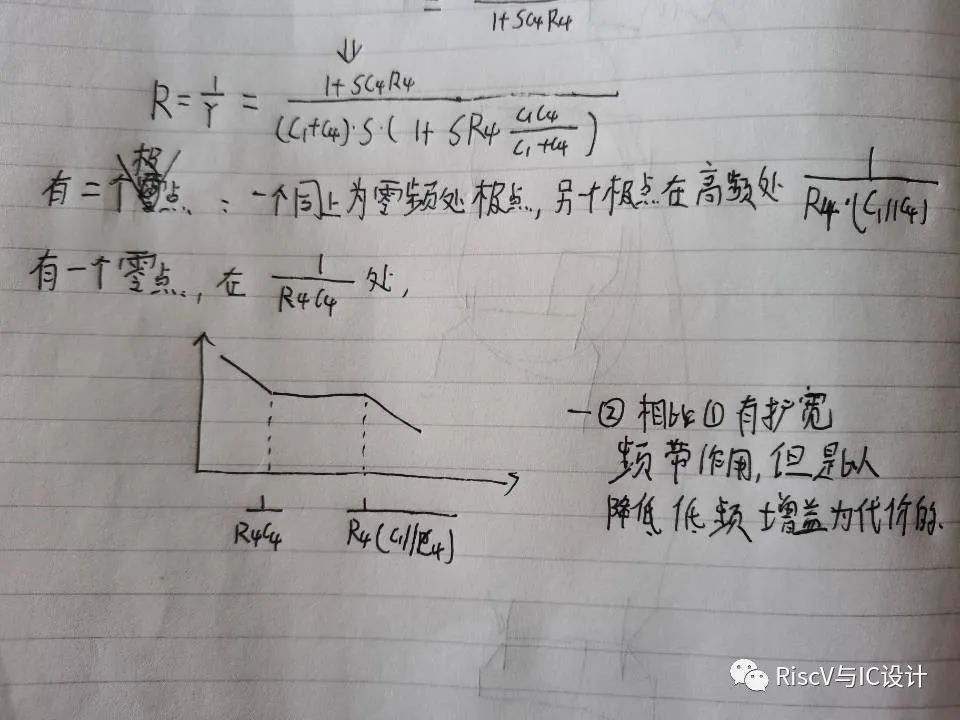 = ─────
1+SC₄R₄
⇓
R = 1/Y = (1+SC₄R₄) / ((C₁+C₄)·S·(1+SR₄ C₁C₄/(C₁+C₄)))
有二个极点：一个同上为零频处极点，另一个极点在高频处 1/(R₄·(C₁//C₄))
有一个零点，在 1/(R₄C₄) 处，
一② 相比① 有扩宽
频带作用，但是以
降低低频增益为代价的.
1/(R₄C₄) 1/(R₄(C₁//C₄))
RiscV与IC设计